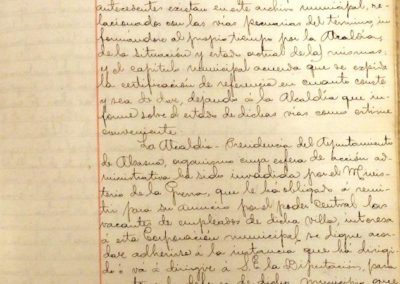 antecedentes existan en este archivo municipal, re-
lacionados con las vias pecuarias del término, in-
formándose al propio tiempo por la Alcaldía,
de la situación y estado actual de las mismas.
y el capítulo municipal acuerda que se expida
la certificación de referencia en cuanto conste
y sea de dar, dejando á la Alcaldía que in-
forme sobre el estado de dichas vias como estime
conveniente.
La Alcaldía-Presidencia del Ayuntamiento
de Alsasua, organismo cuya esfera de acción ad-
ministrativa ha sido invadida por el Minis-
terio de la Guerra, que le ha obligado á remi-
tir para su anuncio por el poder Central las
vacantes de empleados de dicha villa, interesa
á esta Corporación municipal se digne acor-
dar adherirse á la instancia que ha dirigi-
do ó vá á dirigir á S.E. la Diputación, para